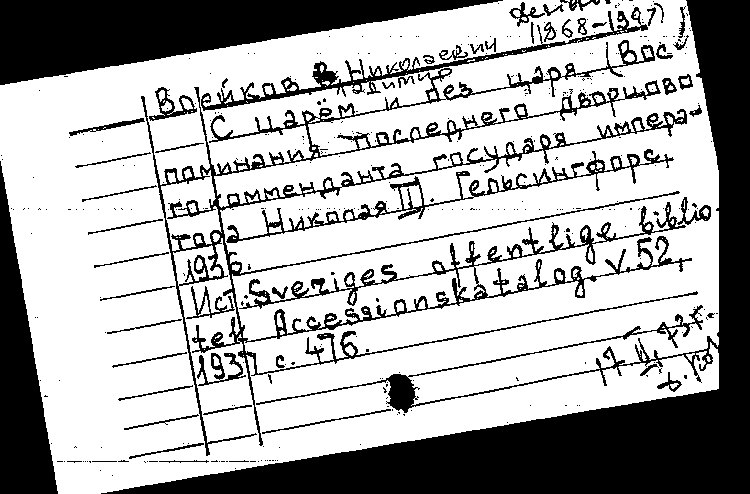 (1868-1947)
Воейков, В. Николаевич
ладимир
С царём и без царя. (Вос-
поминания последнего дворцово-
го комменданта государя импера-
тора Николая II). Гельсингфорс,
1936.
Ист.: Sveriges offentlige biblio-
tek Accessionskatalog. v. 52,
1937, с. 476.